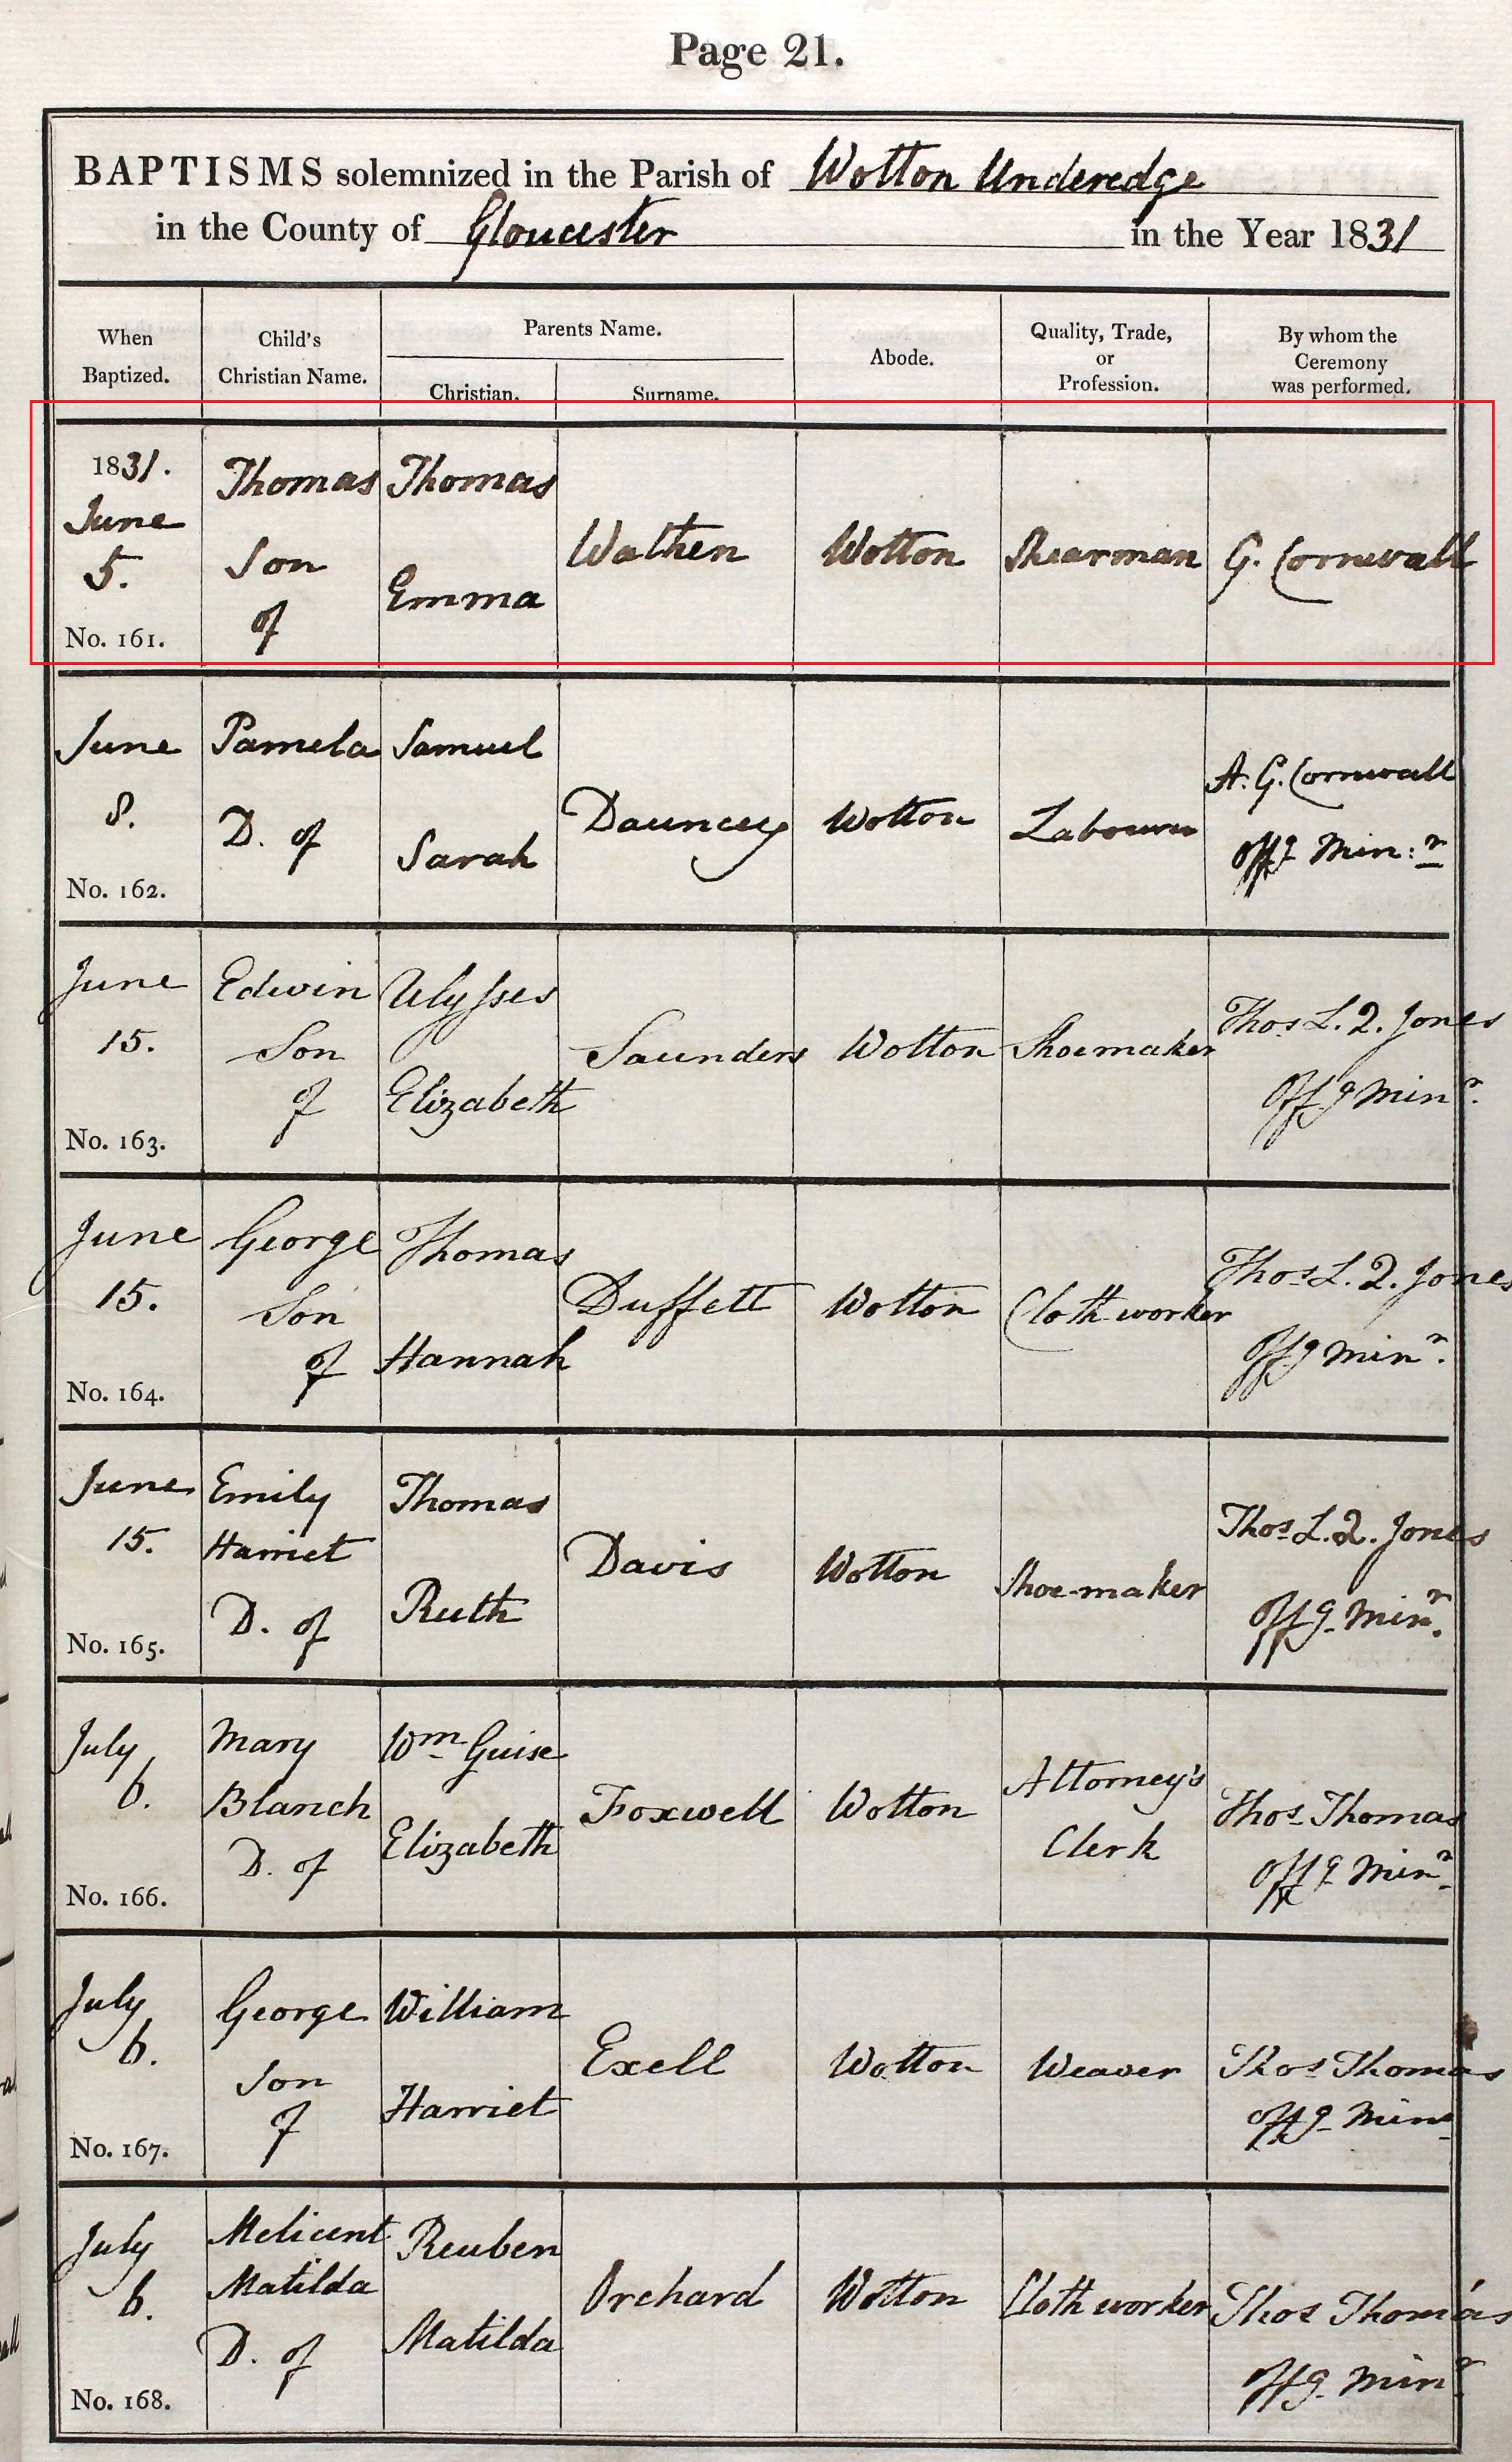 Page 21.
BAPTISMS solemnized in the Parish of Wotton Underedge
in the County of Gloucester in the Year 1831
When Baptized.
Child's Christian Name.
Parents Name.
Christian.
Surname.
Abode.
Quality, Trade, or Profession.
By whom the Ceremony was performed.
1831. June 5. No. 161.
Thomas Son of
Thomas Emma
Wathen
Wotton
Shearman
G. Cornwall
June 8. No. 162.
Pamela D. of
Samuel Sarah
Dauncey
Wotton
Labourer
A. G. Cornwall Offg Min:r
June 15. No. 163.
Edwin Son of
Ulysses Elizabeth
Saunders
Wotton
Shoemaker
Thos L. Q. Jones Offg Minr.
June 15. No. 164.
George Son of
Thomas Hannah
Duffett
Wotton
Cloth worker
Thos L. Q. Jones Offg Minr.
June 15. No. 165.
Emily Harriet D. of
Thomas Ruth
Davis
Wotton
Shoe-maker
Thos L. Q. Jones Offg Minr.
July 6. No. 166.
Mary Blanch D. of
Wm Guise Elizabeth
Foxwell
Wotton
Attorney's Clerk
Thos Thomas Offg Minr
July 6. No. 167.
George Son of
William Harriet
Exell
Wotton
Weaver
Thos Thomas Offg Minr
July 6. No. 168.
Melicent Matilda D. of
Reuben Matilda
Orchard
Wotton
Cloth worker
Thos Thomas Offg Minr